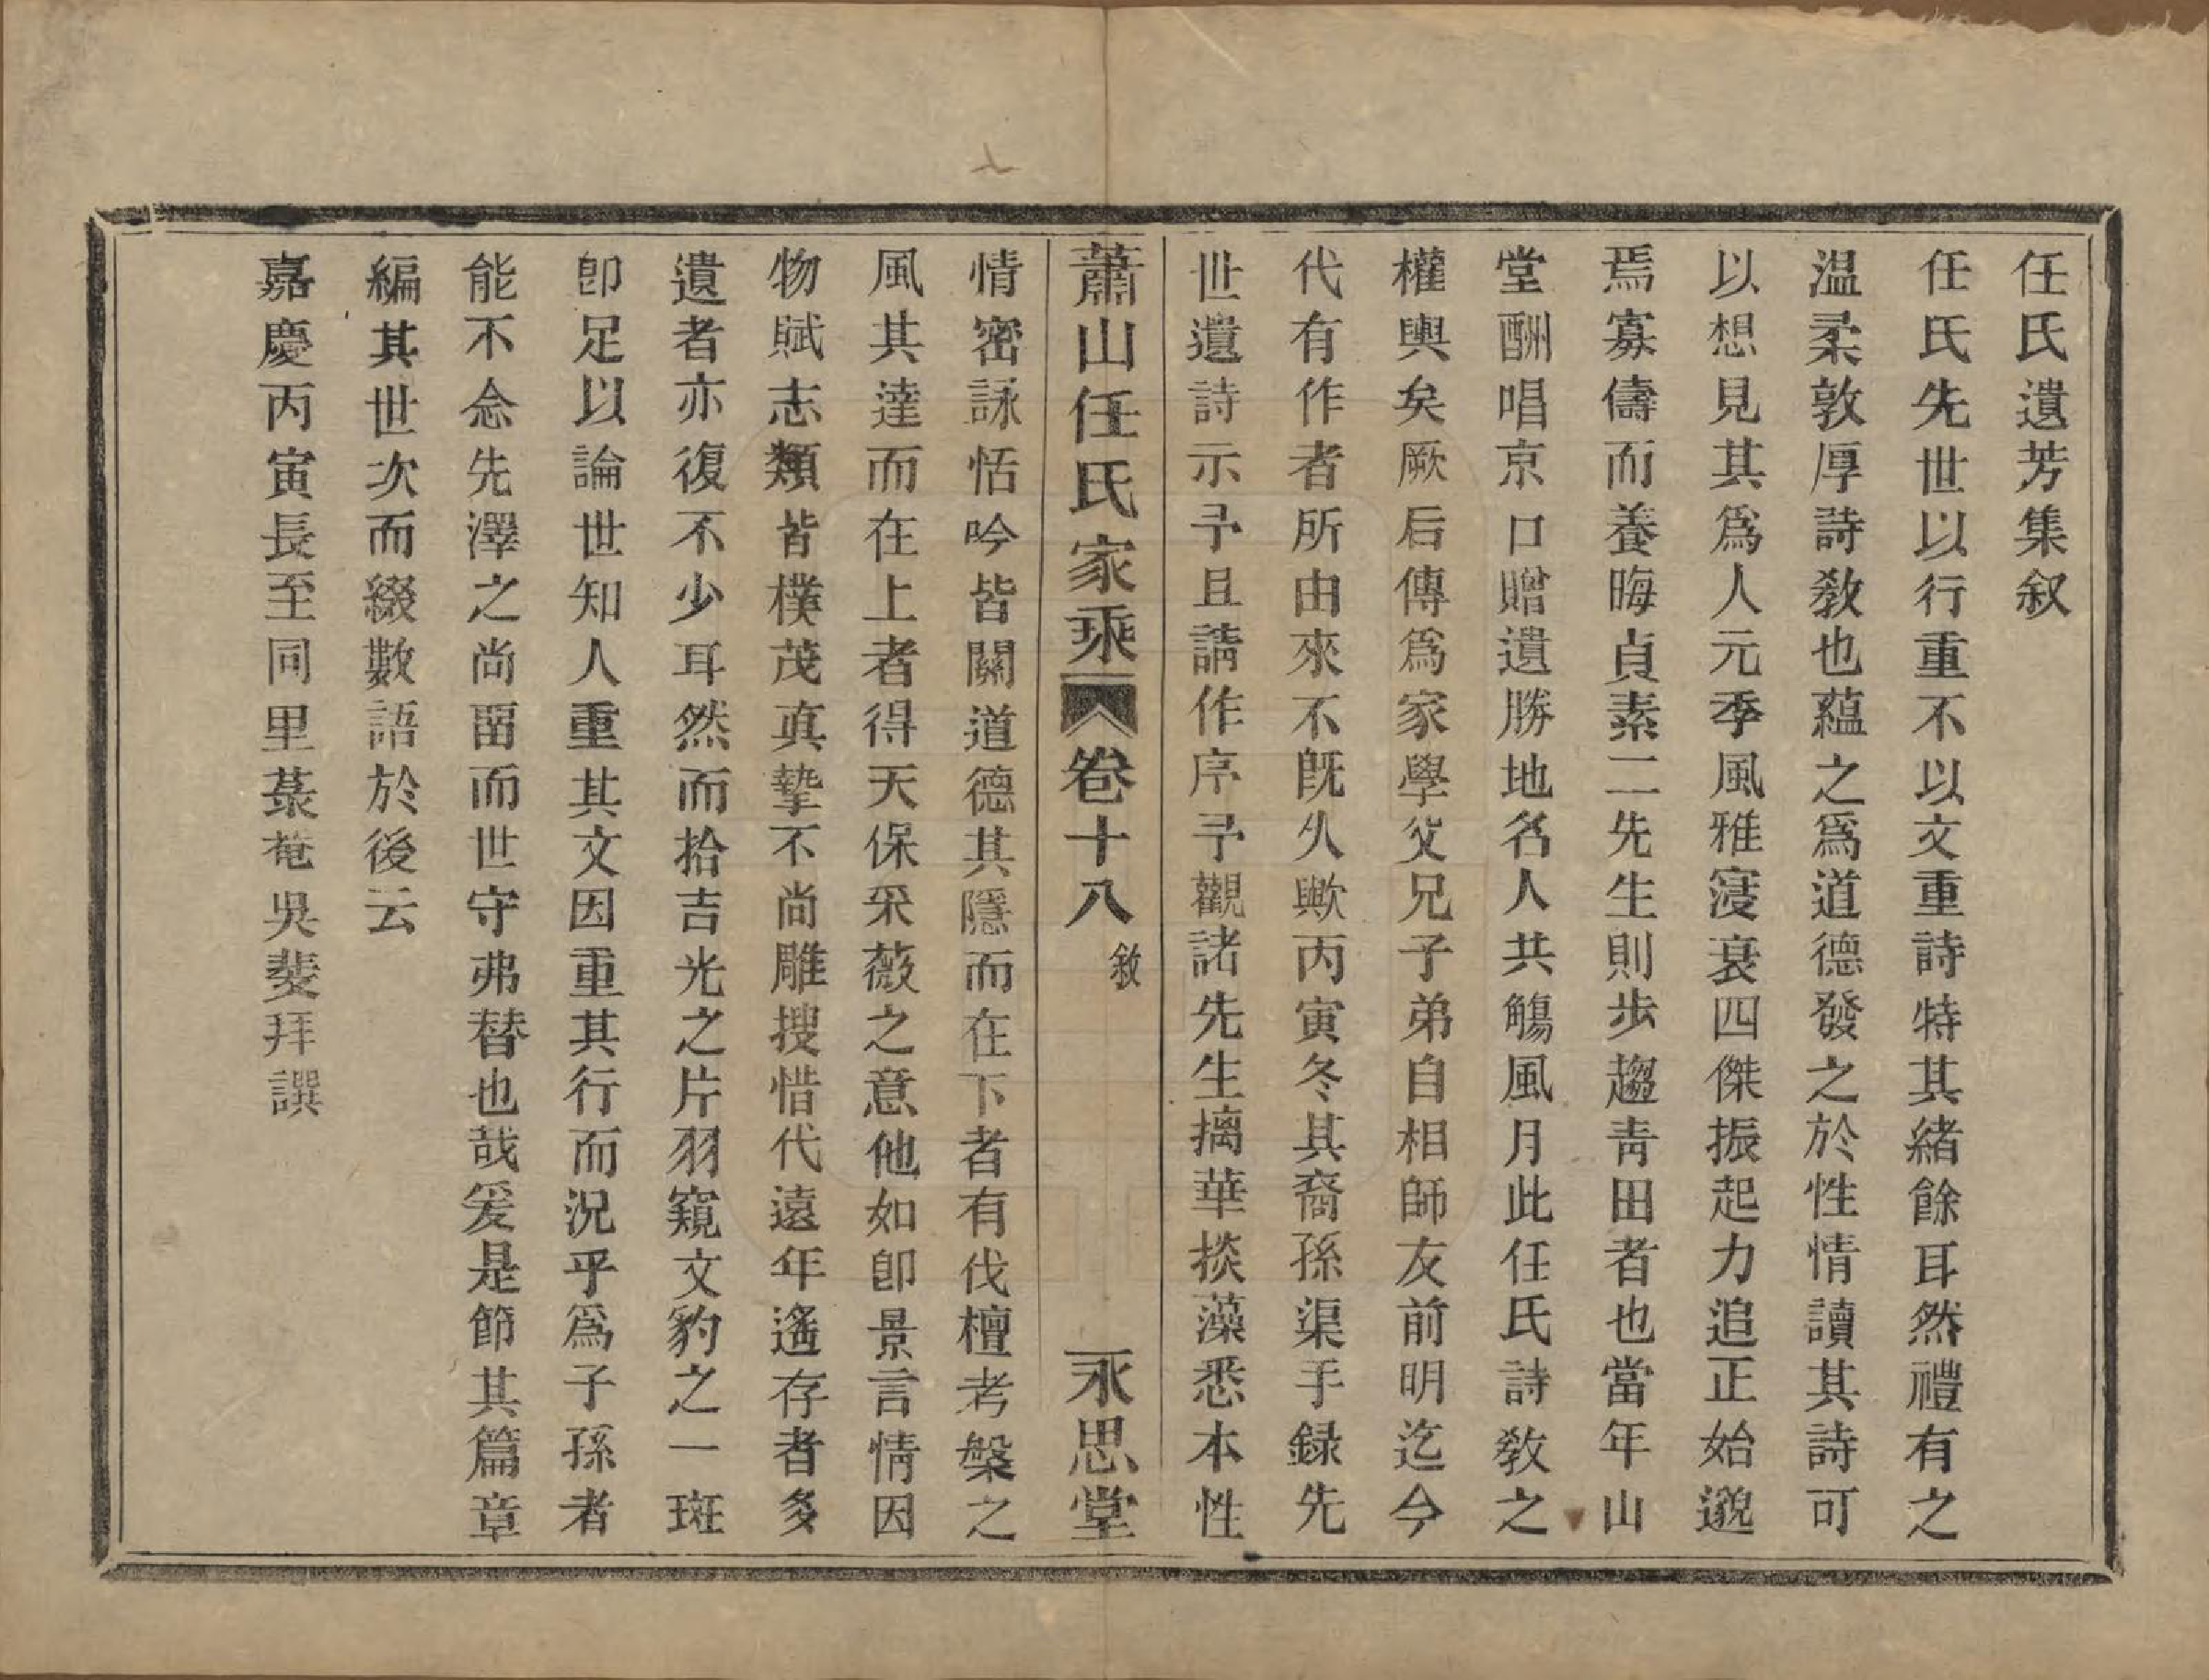 任氏遺芳集叙
任氏先世以行重不以文重詩特其緒餘耳然禮有之
温柔敦厚詩敎也蘊之爲道德發之於性情讀其詩可
以想見其爲人元季風雅寖衰四傑振起力追正始邈
焉寡儔而養晦貞素二先生則步趨靑田者也當年山
堂酬唱京口贈遺勝地名人共觴風月此任氏詩敎之
權輿矣厥后傳爲家學父兄子弟自相師友前明迄今
代有作者所由來不旣久歟丙寅冬其裔孫渠手録先
世遺詩示予且請作序予觀諸先生摛華掞藻悉本性
蕭山任氏家乘 卷十八 敘 永思堂
情密詠恬吟皆關道德其隱而在下者有伐檀考槃之
風其達而在上者得天保采薇之意他如卽景言情因
物賦志類皆樸茂眞摯不尚雕搜惜代遠年遙存者多
遺者亦復不少耳然而拾吉光之片羽窺文豹之一斑
卽足以論世知人重其文因重其行而況乎爲子孫者
能不念先澤之尚畱而世守弗替也哉爰是節其篇章
編其世次而綴數語於後云
嘉慶丙寅長至同里菉菴吳斐拜譔